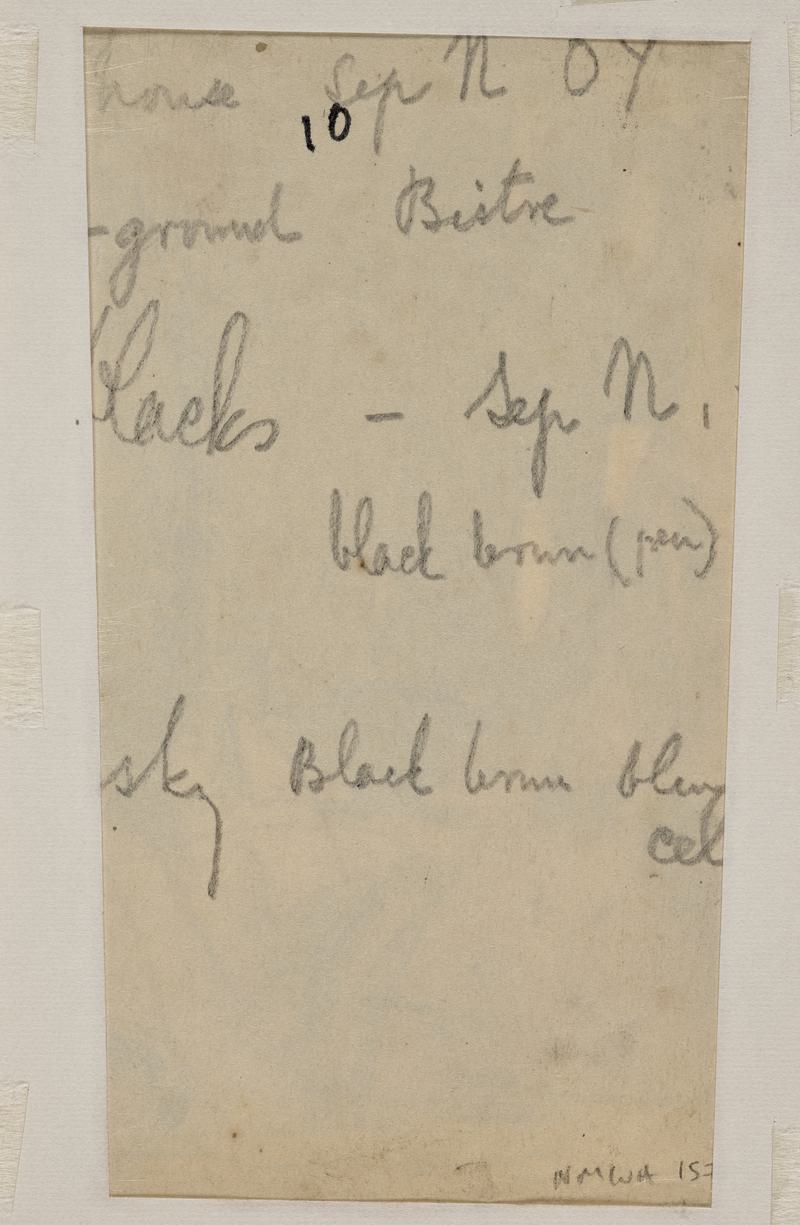 house Sep N OY
10
-ground Bistre
blacks - Sep N.
black brown (pen)
sky Black brown bleu
cel
NMWA 157